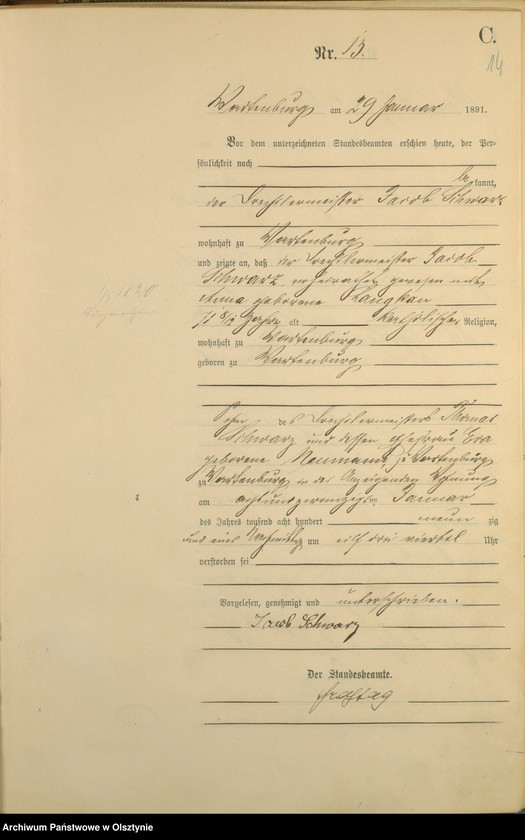 C.
14
Nr. 13.
Wartenburg am 29 Januar 1891.
Vor dem unterzeichneten Standesbeamten erschien heute, der Per-
sönlichkeit nach
be kannt,
der Drechslermeister Jacob Schwarz
wohnhaft zu Wartenburg
und zeigte an, daß der Drechslermeister Jacob
Schwarz, verheirathet gewesen mit
Anna geborene Langkau
71 8/12 Jahre alt katholischer Religion,
wohnhaft zu Wartenburg
geboren zu Wartenburg
Sohn des Drechslermeisters Thomas
Schwarz und dessen Ehefrau Eva
geborene Neumann, zu Wartenburg
zu Wartenburg in des Anzeigenden Wohnung
am achtundzwanzigsten Januar
des Jahres tausend acht hundert neun zig
und eins Nachmittags um elf drei viertel Uhr
verstorben sei
Vorgelesen, genehmigt und unterschrieben.
Jacob Schwarz
Der Standesbeamte.
Archiwum Państwowe w Olsztynie